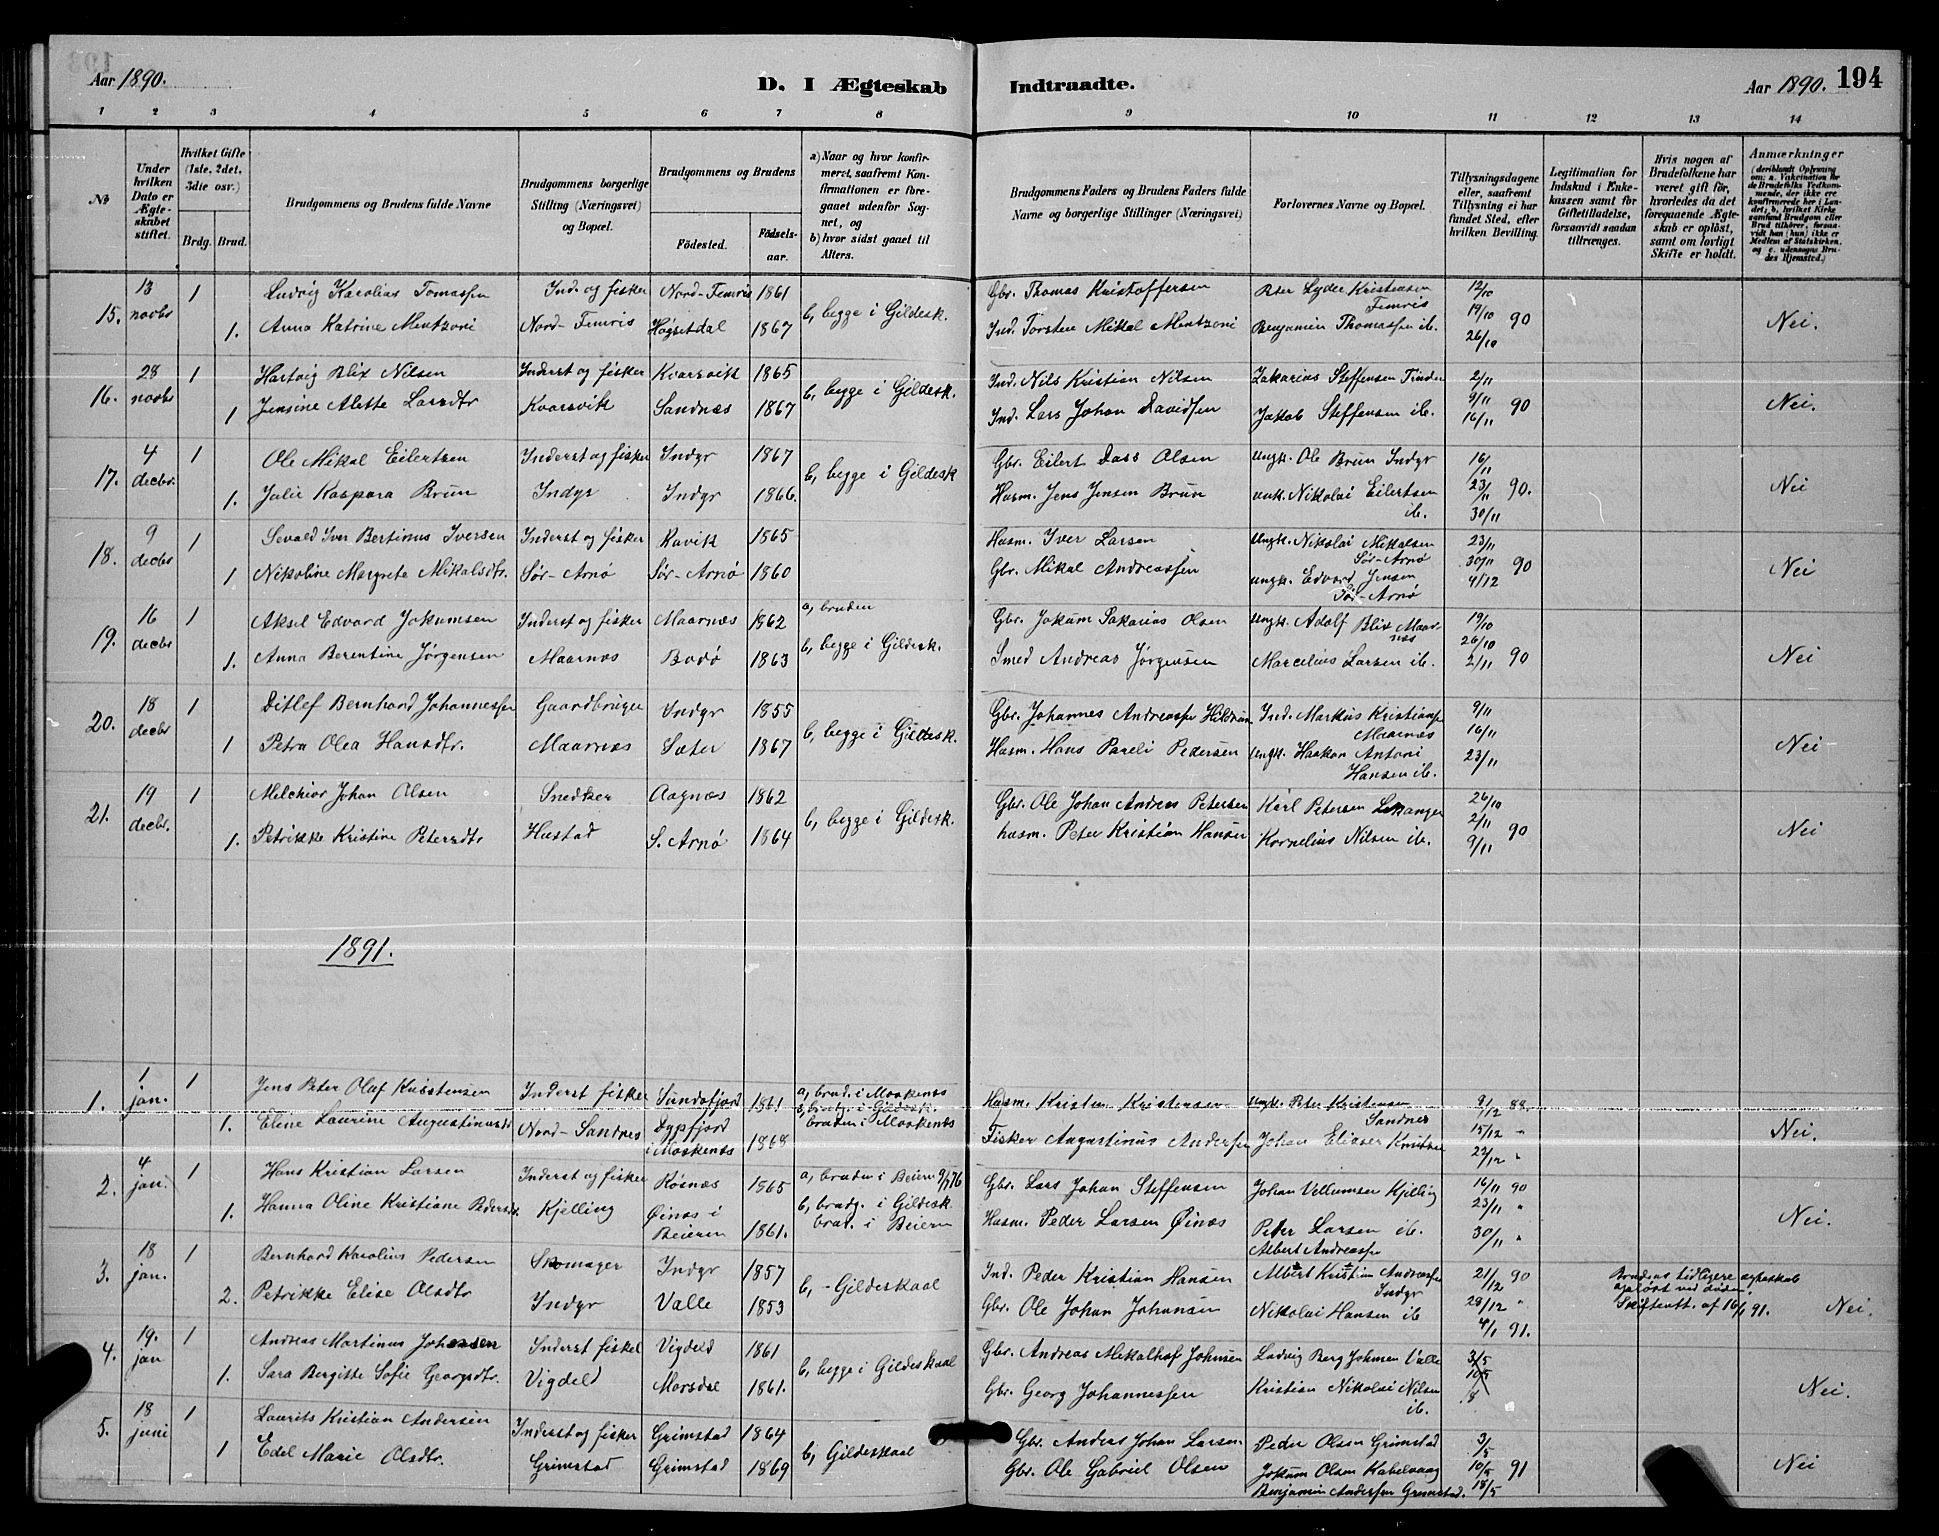 Aar 1890. D. I Ægteskab Indtraadte. Aar 1890. 194
1 2 3 4 5 6 7 8 9 10 11 12 13 14
No
Under hvilken Dato er Ægteskabet stiftet.
Hvilket Gifte (1ste, 2det, 3die osv.)
Brdg. Brud.
Brudgommens og Brudens fulde Navne
Brudgommens borgerlige Stilling (Næringsvei) og Bopæl.
Brudgommens og Brudens
Fødested. Fødselsaar.
a) Naar og hvor konfirmeret, saafremt Konfirmationen er foregaaet udenfor Sognet, og
b) hvor sidst gaaet til Alters.
Brudgommens Faders og Brudens Faders fulde Navne og borgerlige Stillinger (Næringsvei)
Forlovernes Navne og Bopæl.
Tillysningsdagene eller, saafremt Tillysning ei har fundet Sted, efter hvilken Bevilling.
Legitimation for Indskud i Enkekassen samt for Giftetilladelse, forsaavidt saadan tiltrænges.
Hvis nogen af Brudefolkene har været gift før, hvorledes da det foregaaende Ægteskab er opløst, samt om lovligt Skifte er holdt.
Anmærkninger
15. 13 novbr 1 Ludvig Karolius Tomassen Ind. og fisker Nord-Femris 1861 b, begge i Gildesk. Gbr. Thomas Kristoffersen Peter Lyder Kristensen Femris 12/10
1. Anna Katrine Mentzoni Nord-Femris Høgsetdal 1867 Ind. Torsten Mikal Mentzoni Benjamin Thomassen ib. 19/10 90 26/10 Nei.
16. 28 novbr 1 Hartvig Blix Nilsen Inderst og fisker Kvarsvik 1865 b, begge i Gildesk. Ind. Nils Kristian Nilsen Zakarias Steffensen Findes 2/11
1 Jensine Alette Larsdtr Kvarsvik Sandnæs 1867 Ind. Lars Johan Davidsen Jakob Steffensen ib. 9/11 90 16/11 Nei.
17. 4 decbr. 1 Ole Mikal Eilertsen Inderst og fisker Indyr 1867 b, begge i Gildesk Gbr. Eilert Dass Olsen Ungk. Ole Brun Indyr 16/11
1. Julie Kaspara Brun Indyr Indyr 1866. Husm. Jens Jensen Brun unk. Nikolai Eilertsen ib. 23/11 90. 30/11 Nei
18. 9 decbr 1 Sevald Iver Bertinus Iversen Inderst og fisker Ravik 1865 Husm. Iver Larsen Ungk. Nikolai Mikalsen Sør-Arnø 23/11
1 Nikoline Margrete Mikalsdtr. Sør-Arnø Sør-Arnø 1860 Gbr. Mikal Andreassen ungk. Edvard Jensen Sør-Arnø 30/11 90 4/12 Nei
19. 16 decbr 1 Aksel Edvard Jokumsen Inderst og fisker Maarnæs 1862 a, bruden Gbr. Jokum Sakarias Olsen Ungk. Adolf Blix Maarnæs 19/10
1. Anna Berentine Jørgensen Maarnæs Bodø 1863 b, begge i Gildesk. Smed Andreas Jørgensen Marcelius Larsen ib. 26/10 2/11 90 Nei
20. 18 decbr 1 Ditlef Bernhard Johannessen Gaardbruger Indyr 1855 b, begge i Gildesk. Gbr. Johannes Andreassen Hildrum Ind. Markus Kristiansen Maarnæs 9/11
1 Petra Olea Hansdtr. Maarnæs Sæter 1867 Husm. Hans Pareli Pedersen Ungk. Haakon Antoni Hansen ib. 16/11 23/11 Nei
21. 19 decbr. 1 Melchior Johan Olsen Snedker Aagnæs 1862 b, begge i Gildesk. Gbr. Ole Johan Andreas Petersen Karl Petersen Lekanger 26/10
1. Petrikke Kristine Petersdtr Hustad S. Arnø 1864 husm. Peter Kristian Hansen Kornelius Nilsen ib. 2/11 90 9/11 Nei
1891.
1. 1 jan. 1 Jens Peter Olaf Kristensen Inderst fisker Sundsfjord 1861 a, brud. i Moskenæs b, brudg. i Gildesk. bruden i Moskenæs Husm. Kristen Kristensen ungk. Peter Kristensen Sandnes
1. Eline Laurine Augustinusdtr Nord-Sandnes Dypfjord i Moskenæs 1868 Fisker Augustinus Andersen Johan Elisæer Knutsen 15/12 " Nei.
2. 4 jan. 1 Hans Kristian Larsen Inderst og fisker Røsnæs 1865 a, bruden i Beiern 9/7 76 Gbr. Lars Johan Steffensen Johan Vellumsen Kjelling 16/11 90
1. Hanna Oline Kristiane Pedersdtr. Kjelling Øinæs i Beieren 1861. b, brudg. i Gildesk. brud. i Beiern Husm. Peder Larsen Øinæs Peter Larsen ib. 23/11 " 30/11 " Nei.
3. 18 jan. 1 Bernhard Karolius Pedersen Skomager Indyr 1857 b, - Gildeskaal Ind. Peder Kristian Hansen Albert Andreassen Albert Kristian Andreassen Indyr 21/12 90 Brudens tidligere ægteskab opløst ved døden.
2. Petrikke Elise Olsdtr Indyr Valle 1853 Gbr. Ole Johan Johansen Nikolai Hansen ib 28/12 " 4/1 91. Skifteatt. af 16/1 91. Nei.
4. 19. jan 1 Andreas Martinus Johansen Inderst fisker Vigdeld 1861 b, begge i Gildeskaal Gbr. Andreas Mikalhof Johnsen Ludvig Berg Johnsen Valle 3/5
1. Sara Bergitte Sofie Georgsdtr. Vigdeld Morsdal 1861. Gbr. Georg Johannessen Kristian Nikolai Nilsen ib. 10/5 Nei.
5. 18 juni 1 Laurits Kristian Andersen Inderst og fisker Grimstad 1864 b, Gildeskaal Gbr. Anders Johan Larsen Peder Olsen Grimstad 3/5
1 Edel Marie Olsdtr. Grimstad Grimstad 1869 Gbr. Ole Gabriel Olsen Jokum Olsen Kabelvaag 10/5 91 Nei
Benjamin Andersen Grimstad. 18/5